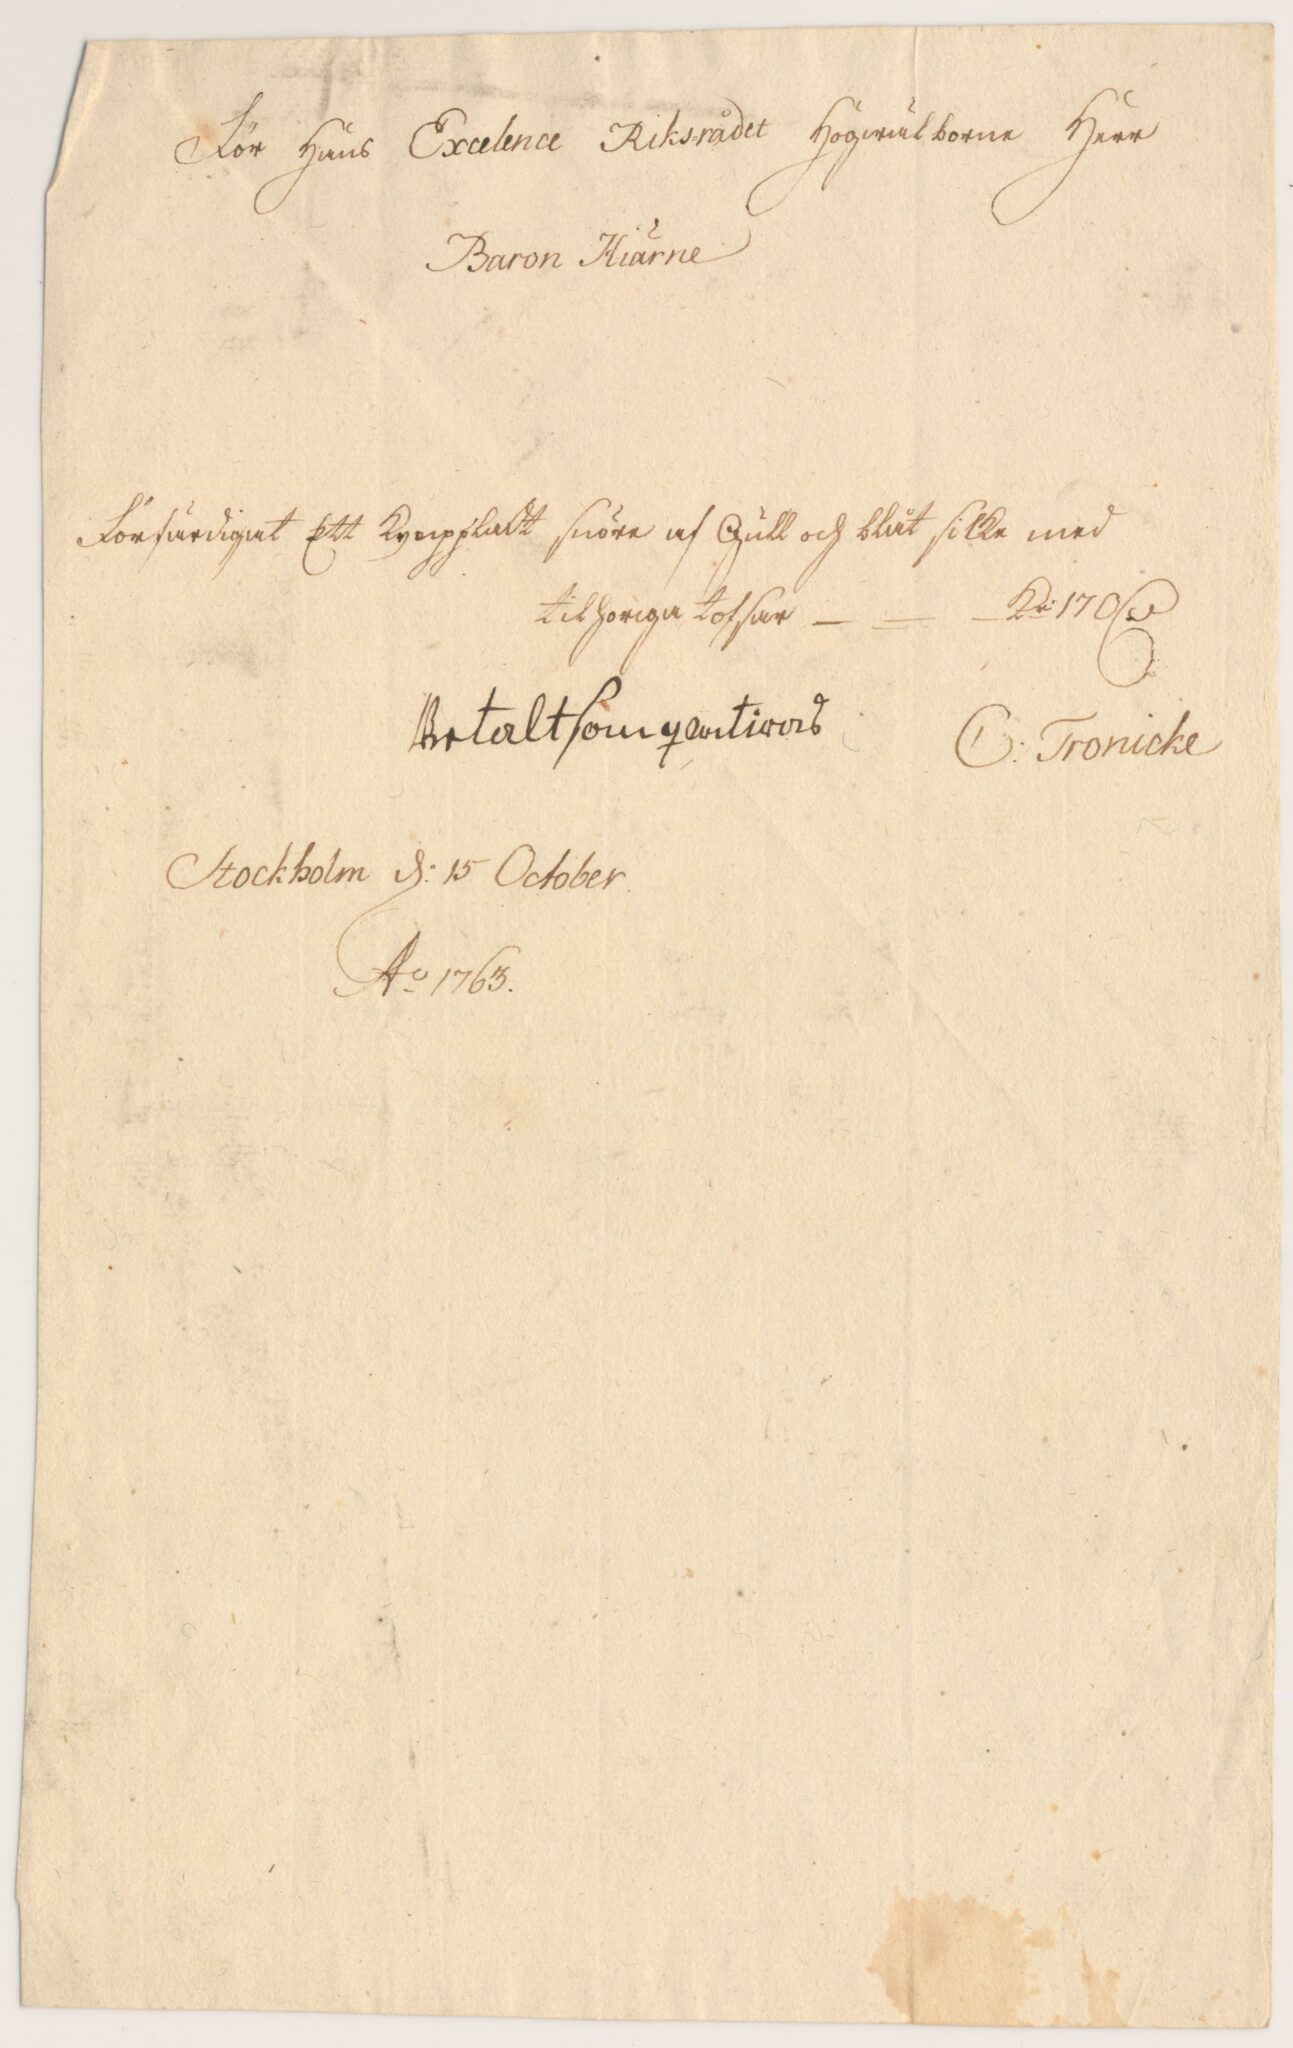 För Hans Excelence Riksrådet Högwälborne Herr
Baron Hiärne
Förfärdigat Ett snöre af Gull och blåt silke med
tilhöriga tofsar — = — Kr: 170
Betalt som qvitteras
C: Tronicke
Stockholm d: 15 October
Ao 1763.